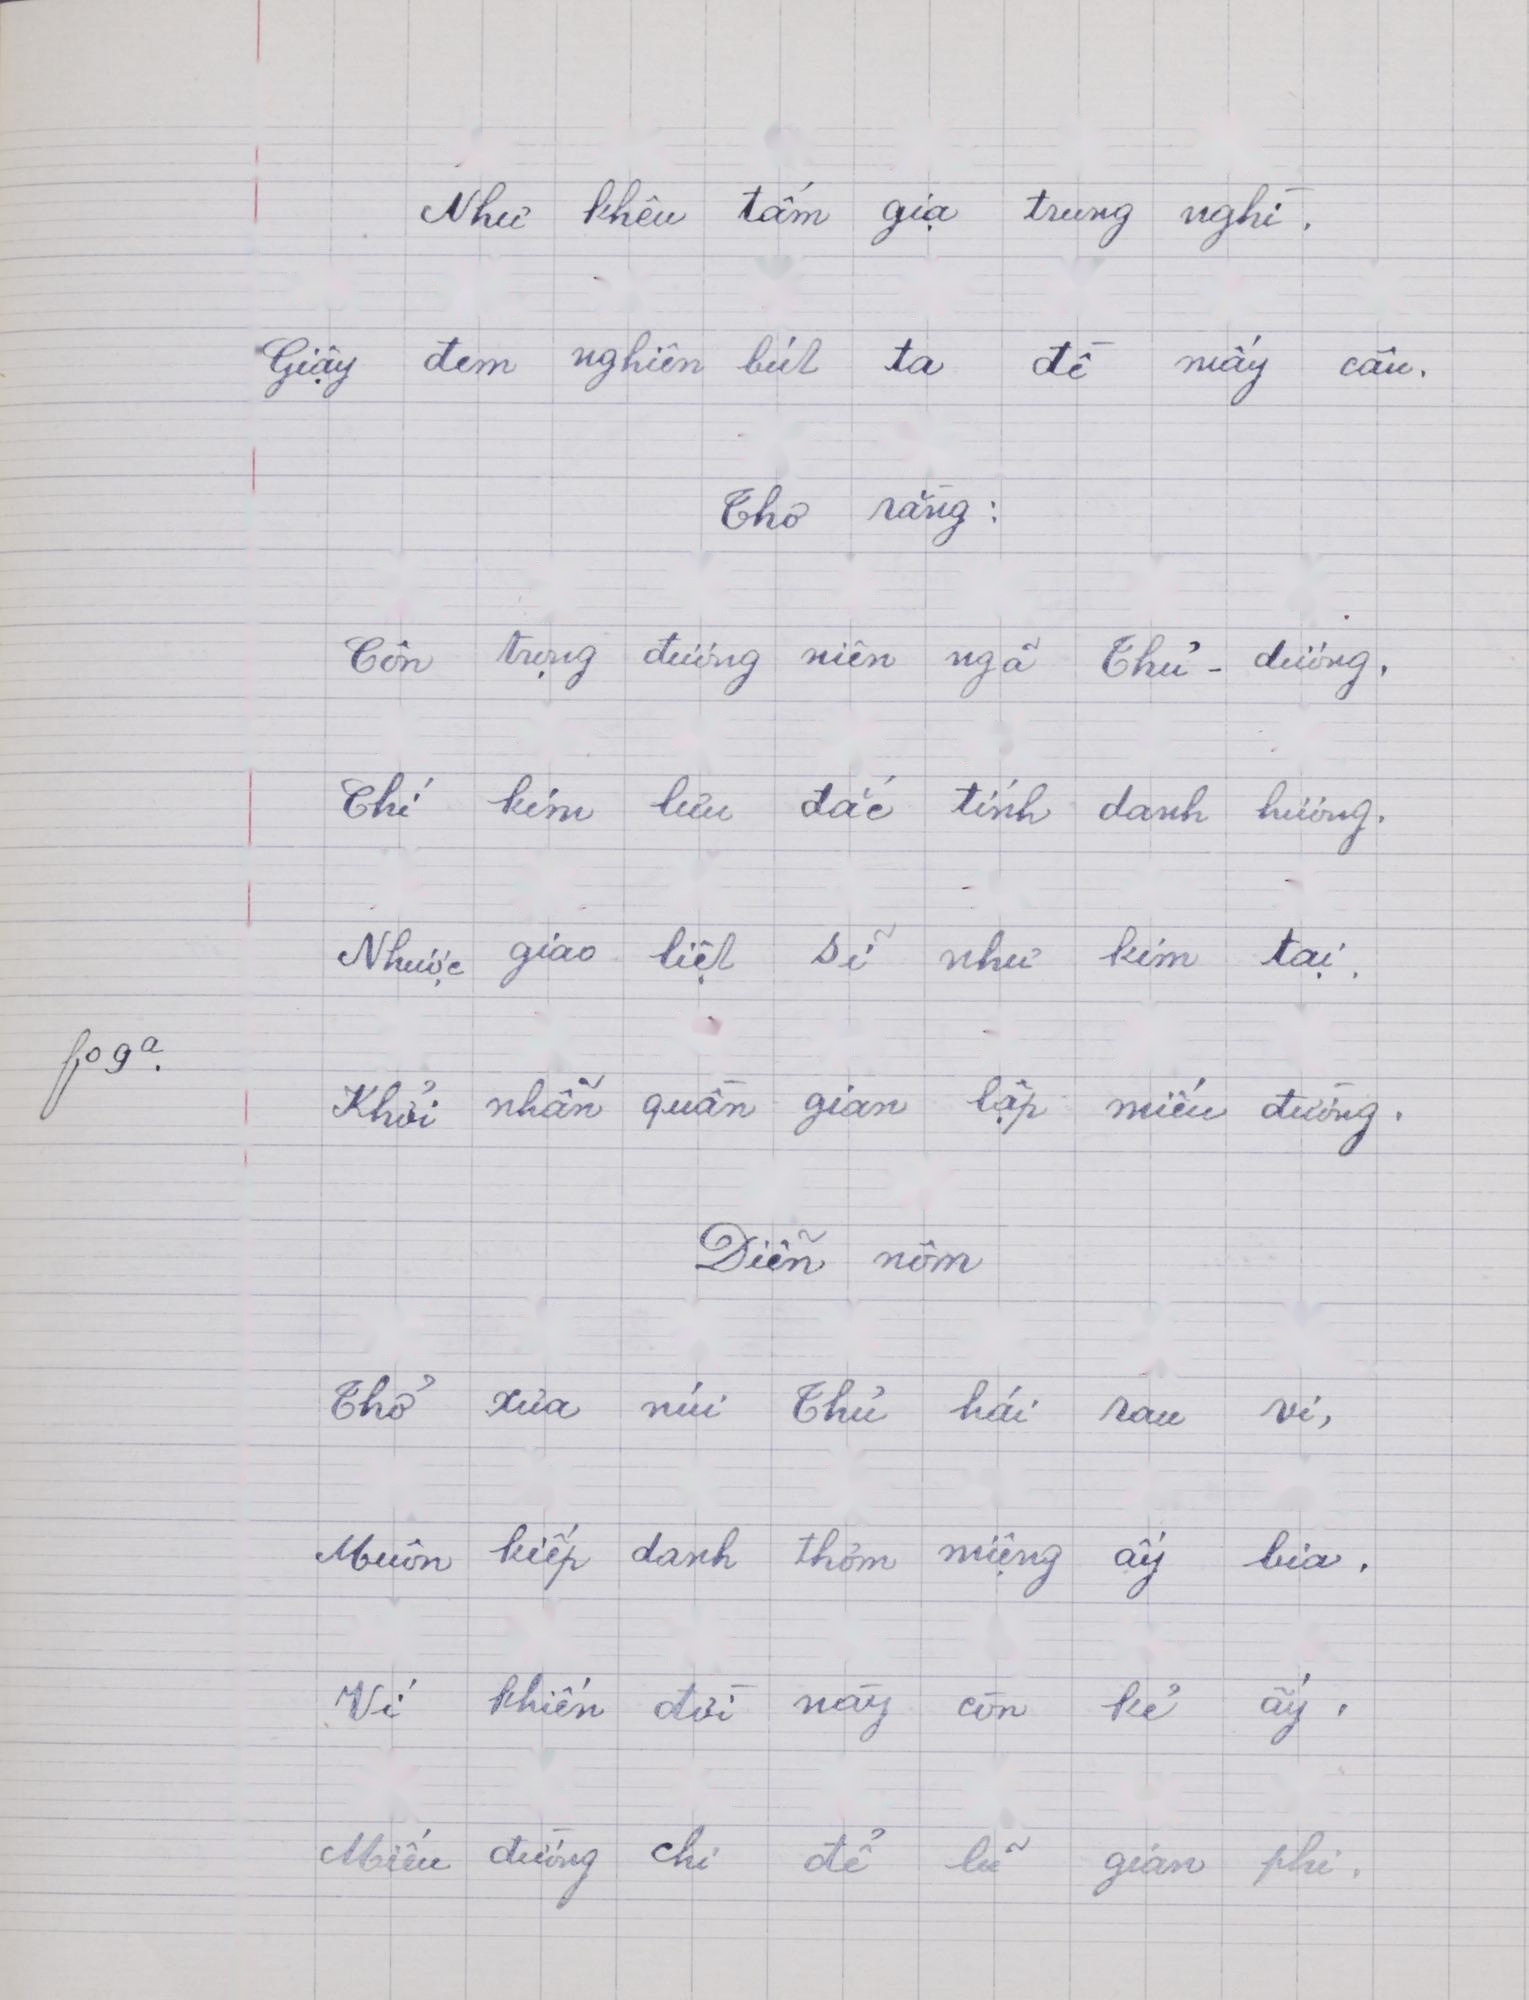 Như khêu tấm gịa trung nghì.
Giậy đem nghiên bút ta đề mấy câu.
Thơ rằng:
Côn trọng đương niên ngã Thủ - dương,
Chí kim lưu đắc tính danh hương.
Nhược giao liệt sĩ như kim tại,
fo 9a.
Khởi nhẫn quần gian lập miếu đường.
Diễn nôm
Thở xưa núi Thủ hái rau vi,
Muôn kiếp danh thơm miệng ấy bia.
Ví khiến đời này còn kẻ ấy,
Miếu đường chi để lũ gian phi.